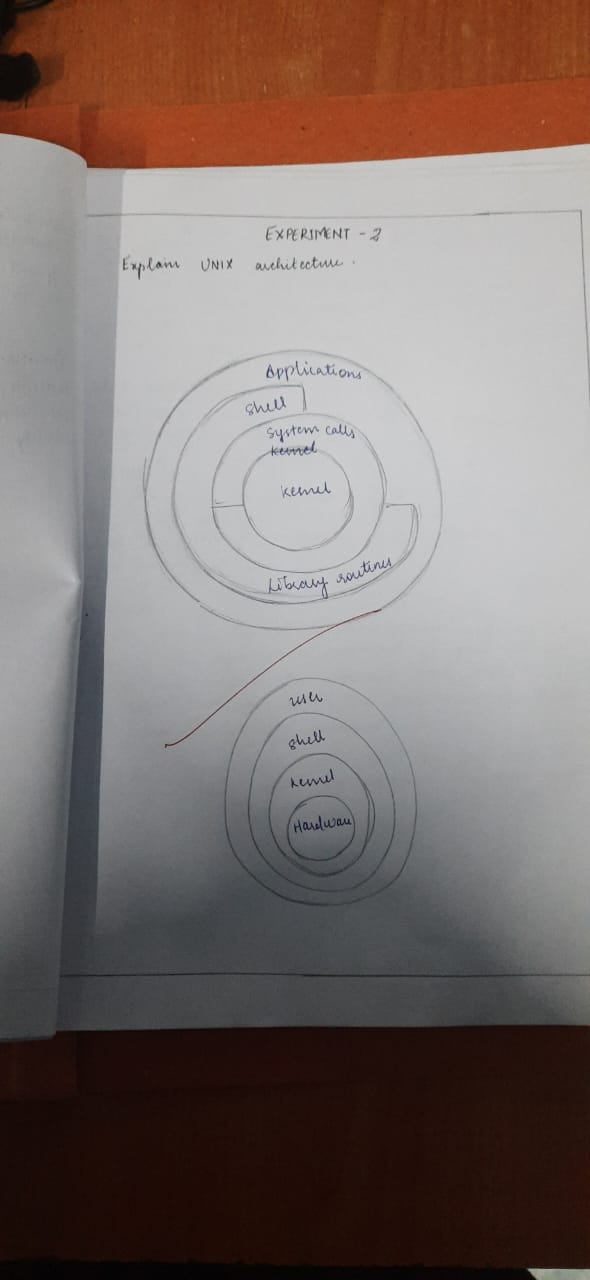 EXPERIMENT - 2
Explain UNIX architecture.
Applications
Shell
System calls
Kernel
Kernel
Library routines
user
shell
Kernel
Hardware